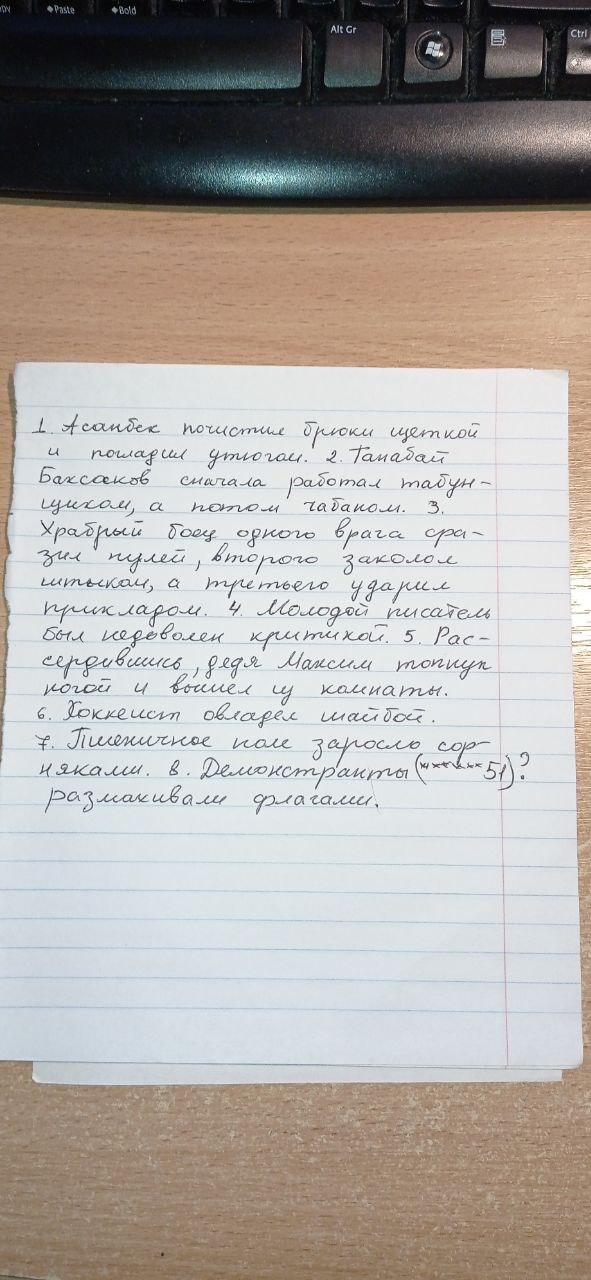 Paste
Bold
Alt Gr
Ctrl
1. Асанбек почистил брюки щеткой
и погладил утюгом. 2. Танабай
Баксаков сначала работал табун-
щиком, а потом чабаном. 3.
Храбрый боец одного врага сра-
зил пулей, второго заколол
штыком, а третьего ударил
прикладом. 4. Молодой писатель
был недоволен критикой. 5. Рас-
сердившись, дядя Максим топнул
ногой и вышел из комнаты.
6. Хоккеист овладел шайбой.
7. Пшеничное поле заросло сор-
няками. 8. Демонстранты (******51)?
размахивали флагами.